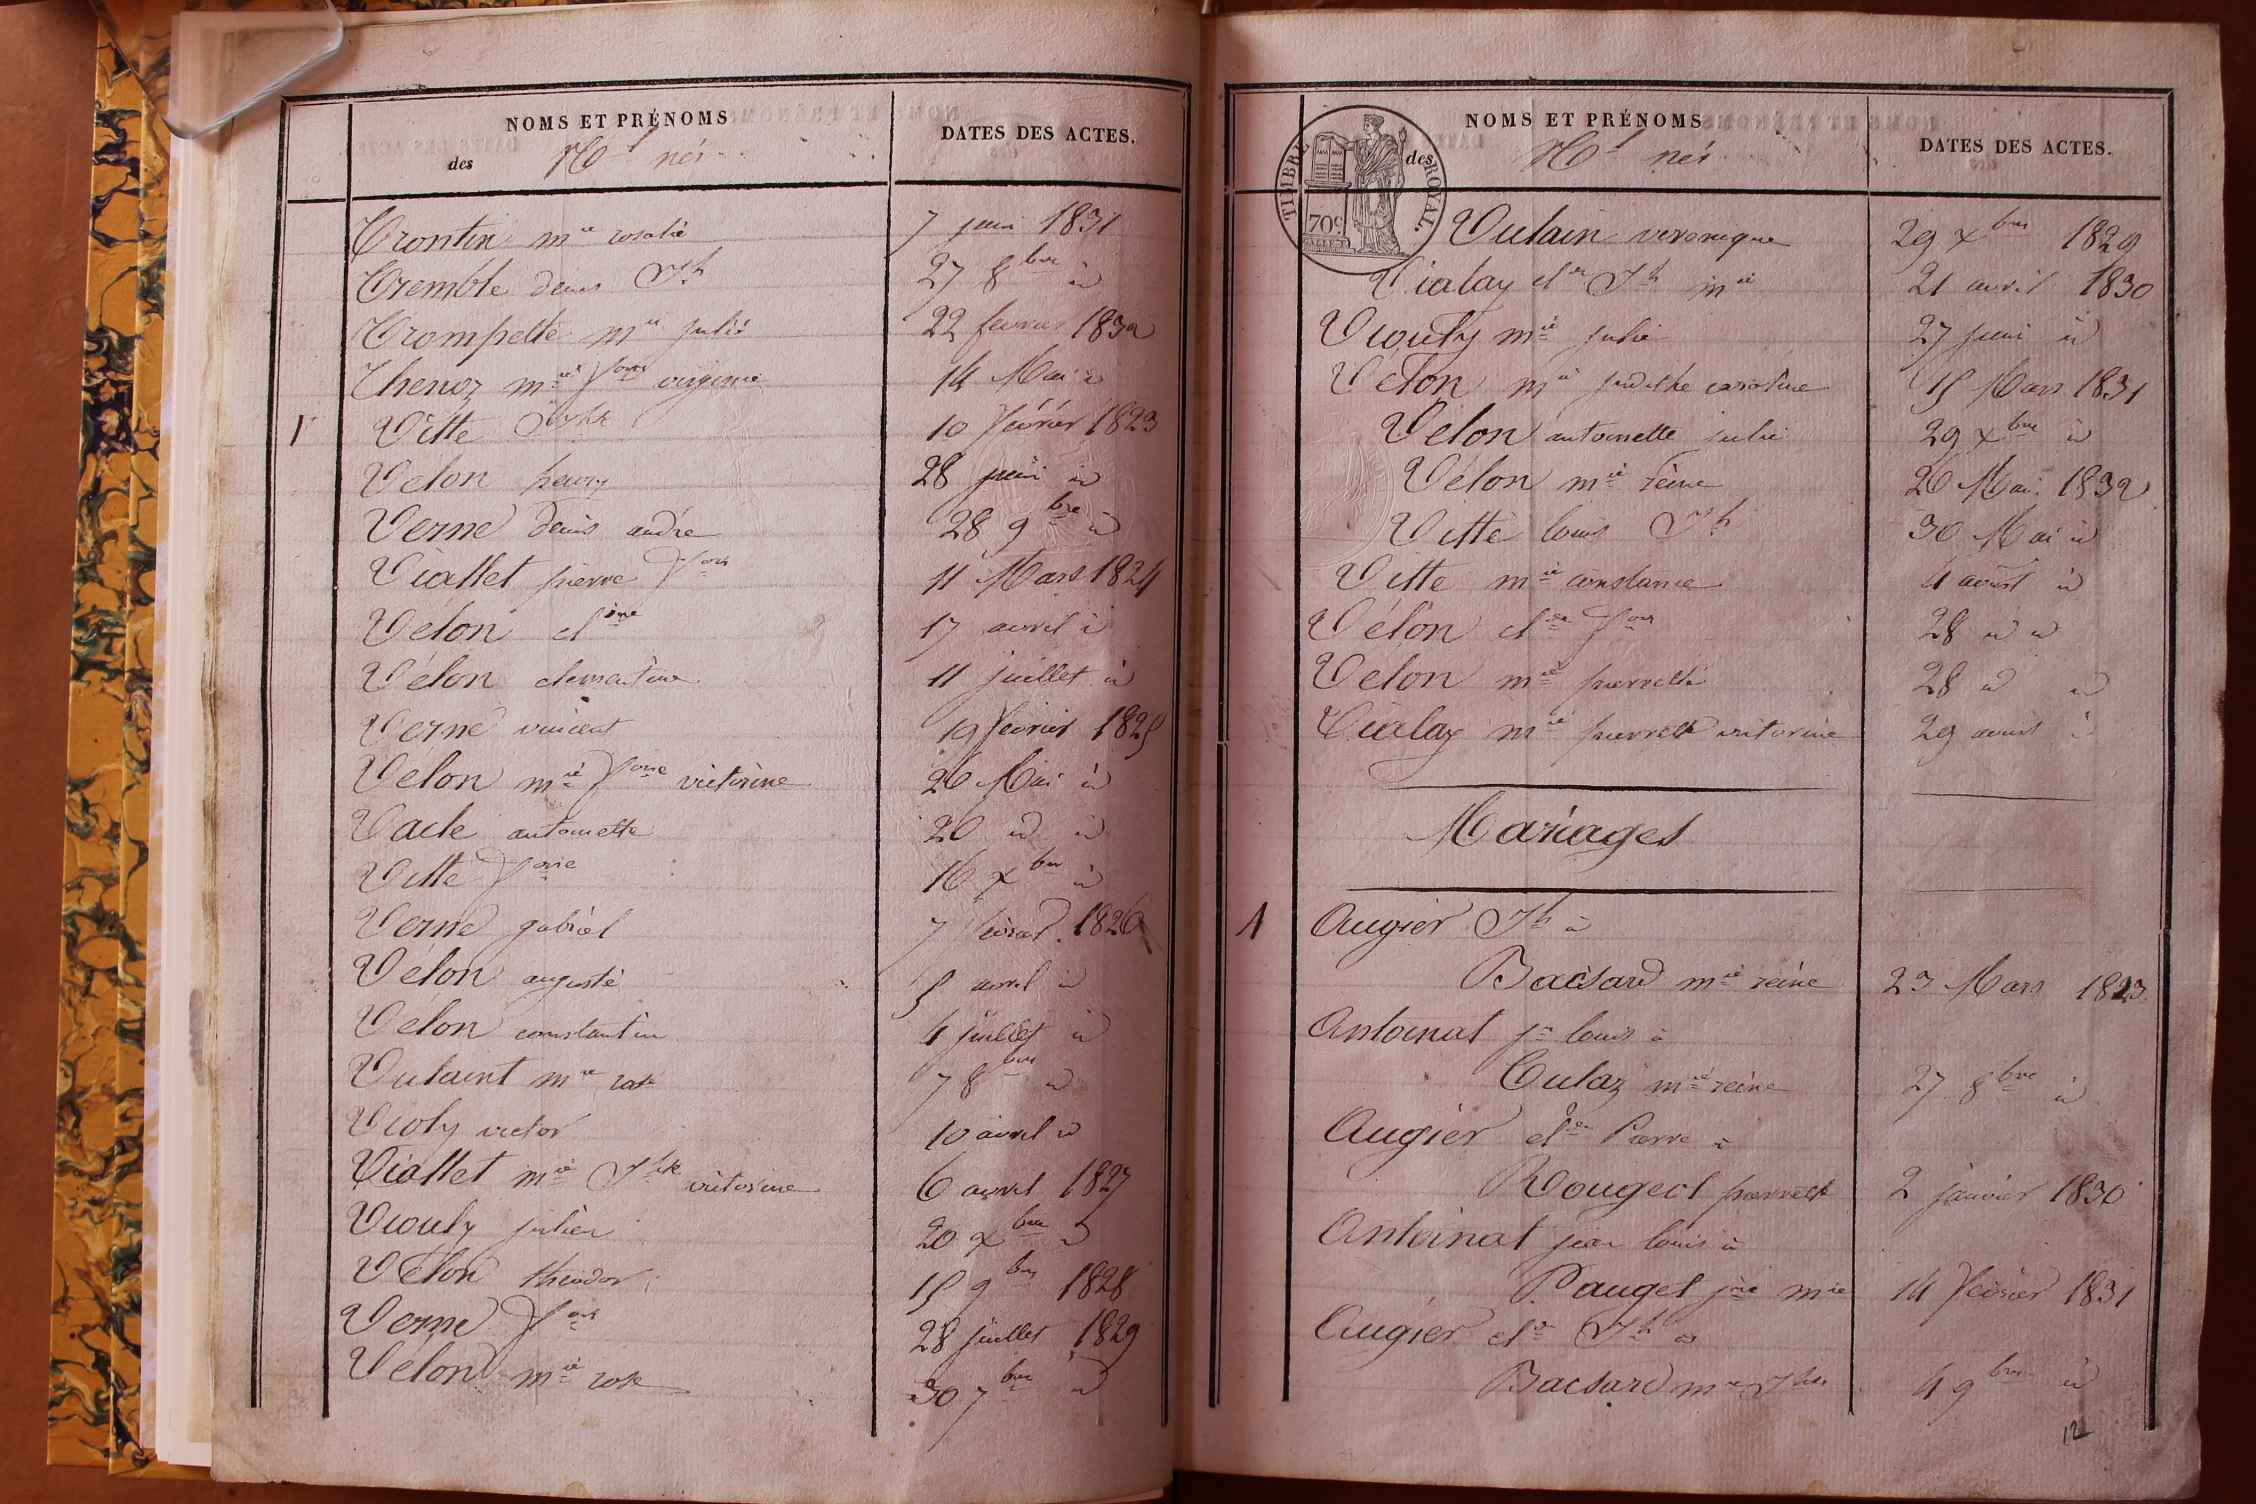 NOMS ET PRÉNOMS
DATES DES ACTES.
des nés
Trontin mie rosalie 7 juin 1831
Tremble denis Jh 27 8bre id
Trompette mie julie 22 fevrier 1832
Thenoz mie virginie 14 Mai id
V Vitte Jhte 10 février 1823
Vélon henry 28 juin id
Verne denis andré 28 9bre id
Viallet pierre fois 11 Mars 1824
Vélon cline 17 avril id
Vélon clementine 11 juillet id
Verne vincent 19 février 1825
Velon mie foise victorine 26 Mai id
Vacle antoinette 26 id id
Vitte foise 16 xbre id
Verne gabriel 7 1826
Vélon auguste 5 avril id
Vélon constantin 4 juillet id
Vulaint mie rose 7 8bre id
Violy victor 10 avril id
Viallet mie Jhte victorine 6 avril 1827
Viouly julien 20 xbre id
Vélon théodor 15 9bre 1828
Verne fois 28 juillet 1829
Vélon mie rose 30 7bre id
NOMS ET PRÉNOMS
DATES DES ACTES.
des nés
TIMBRE ROYAL
70c
Vulain veronique 29 xbre 1829
Vialay cl Jh mie 21 avril 1830
Viouly mie julie 27 juin id
Vélon mie judithe caroline 15 Mars 1831
Vélon antoinette julie 29 xbre id
Vélon mie reine 26 Mai 1832
Vitte louis Jh 30 Mai id
Vitte mie constance 4 aoust id
Vélon clde fois 28 id id
Velon mie pierrette 28 id id
Vialay mie pierrette victorine 29 aoust id
Mariages
A Augier Jh à
Bacsard mie reine 23 Mars 1823
Antoinat jn louis à
Culaz mie reine 27 8bre id
Augier clde Pierre à
Rougeot pierrette 2 janvier 1830
Antoinat jean louis à
Pauget mie 14 février 1831
Augier clde Jh à
Bacsard mie Jhte 4 9bre id
12